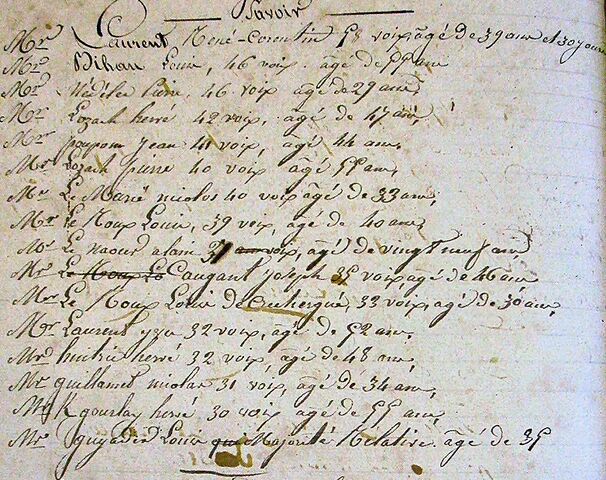 Savoir
Mr Laurent René-Corentin 58 voix, agé de 39 ans et 30 jours
Mr Bihan Louis, 46 voix agé de 55 ans
Mr Nédélec 46 voix agé de 29 ans,
Mr Lozach hervé 42 voix, agé de 47 ans,
Mr poupon jean 41 voix, agé 44 ans,
Mr Lozach 40 voix, agé ans,
Mr Le Marié nicolas 40 voix, agé de 33 ans,
Mr Le Roux Louis, 39 voix, agé de 40 ans,
Mr Le naour alain 37 voix, agé de vingt neuf ans,
Mr Le Roux Lo Caugant joseph 35 voix, agé de 46 ans,
Mr Le Roux Louis de 33 voix, agé de 30 ans,
Mr Laurent yves 32 voix, agé de 52 ans,
Mr hervé 32 voix, agé de 48 ans,
Mr guillamet nicolas 31 voix, agé de 34 ans,
Mr Kgourlay hervé, 30 voix agé de 55 ans,
Mr guyader Louis qui Majorité Relative, agé de 35